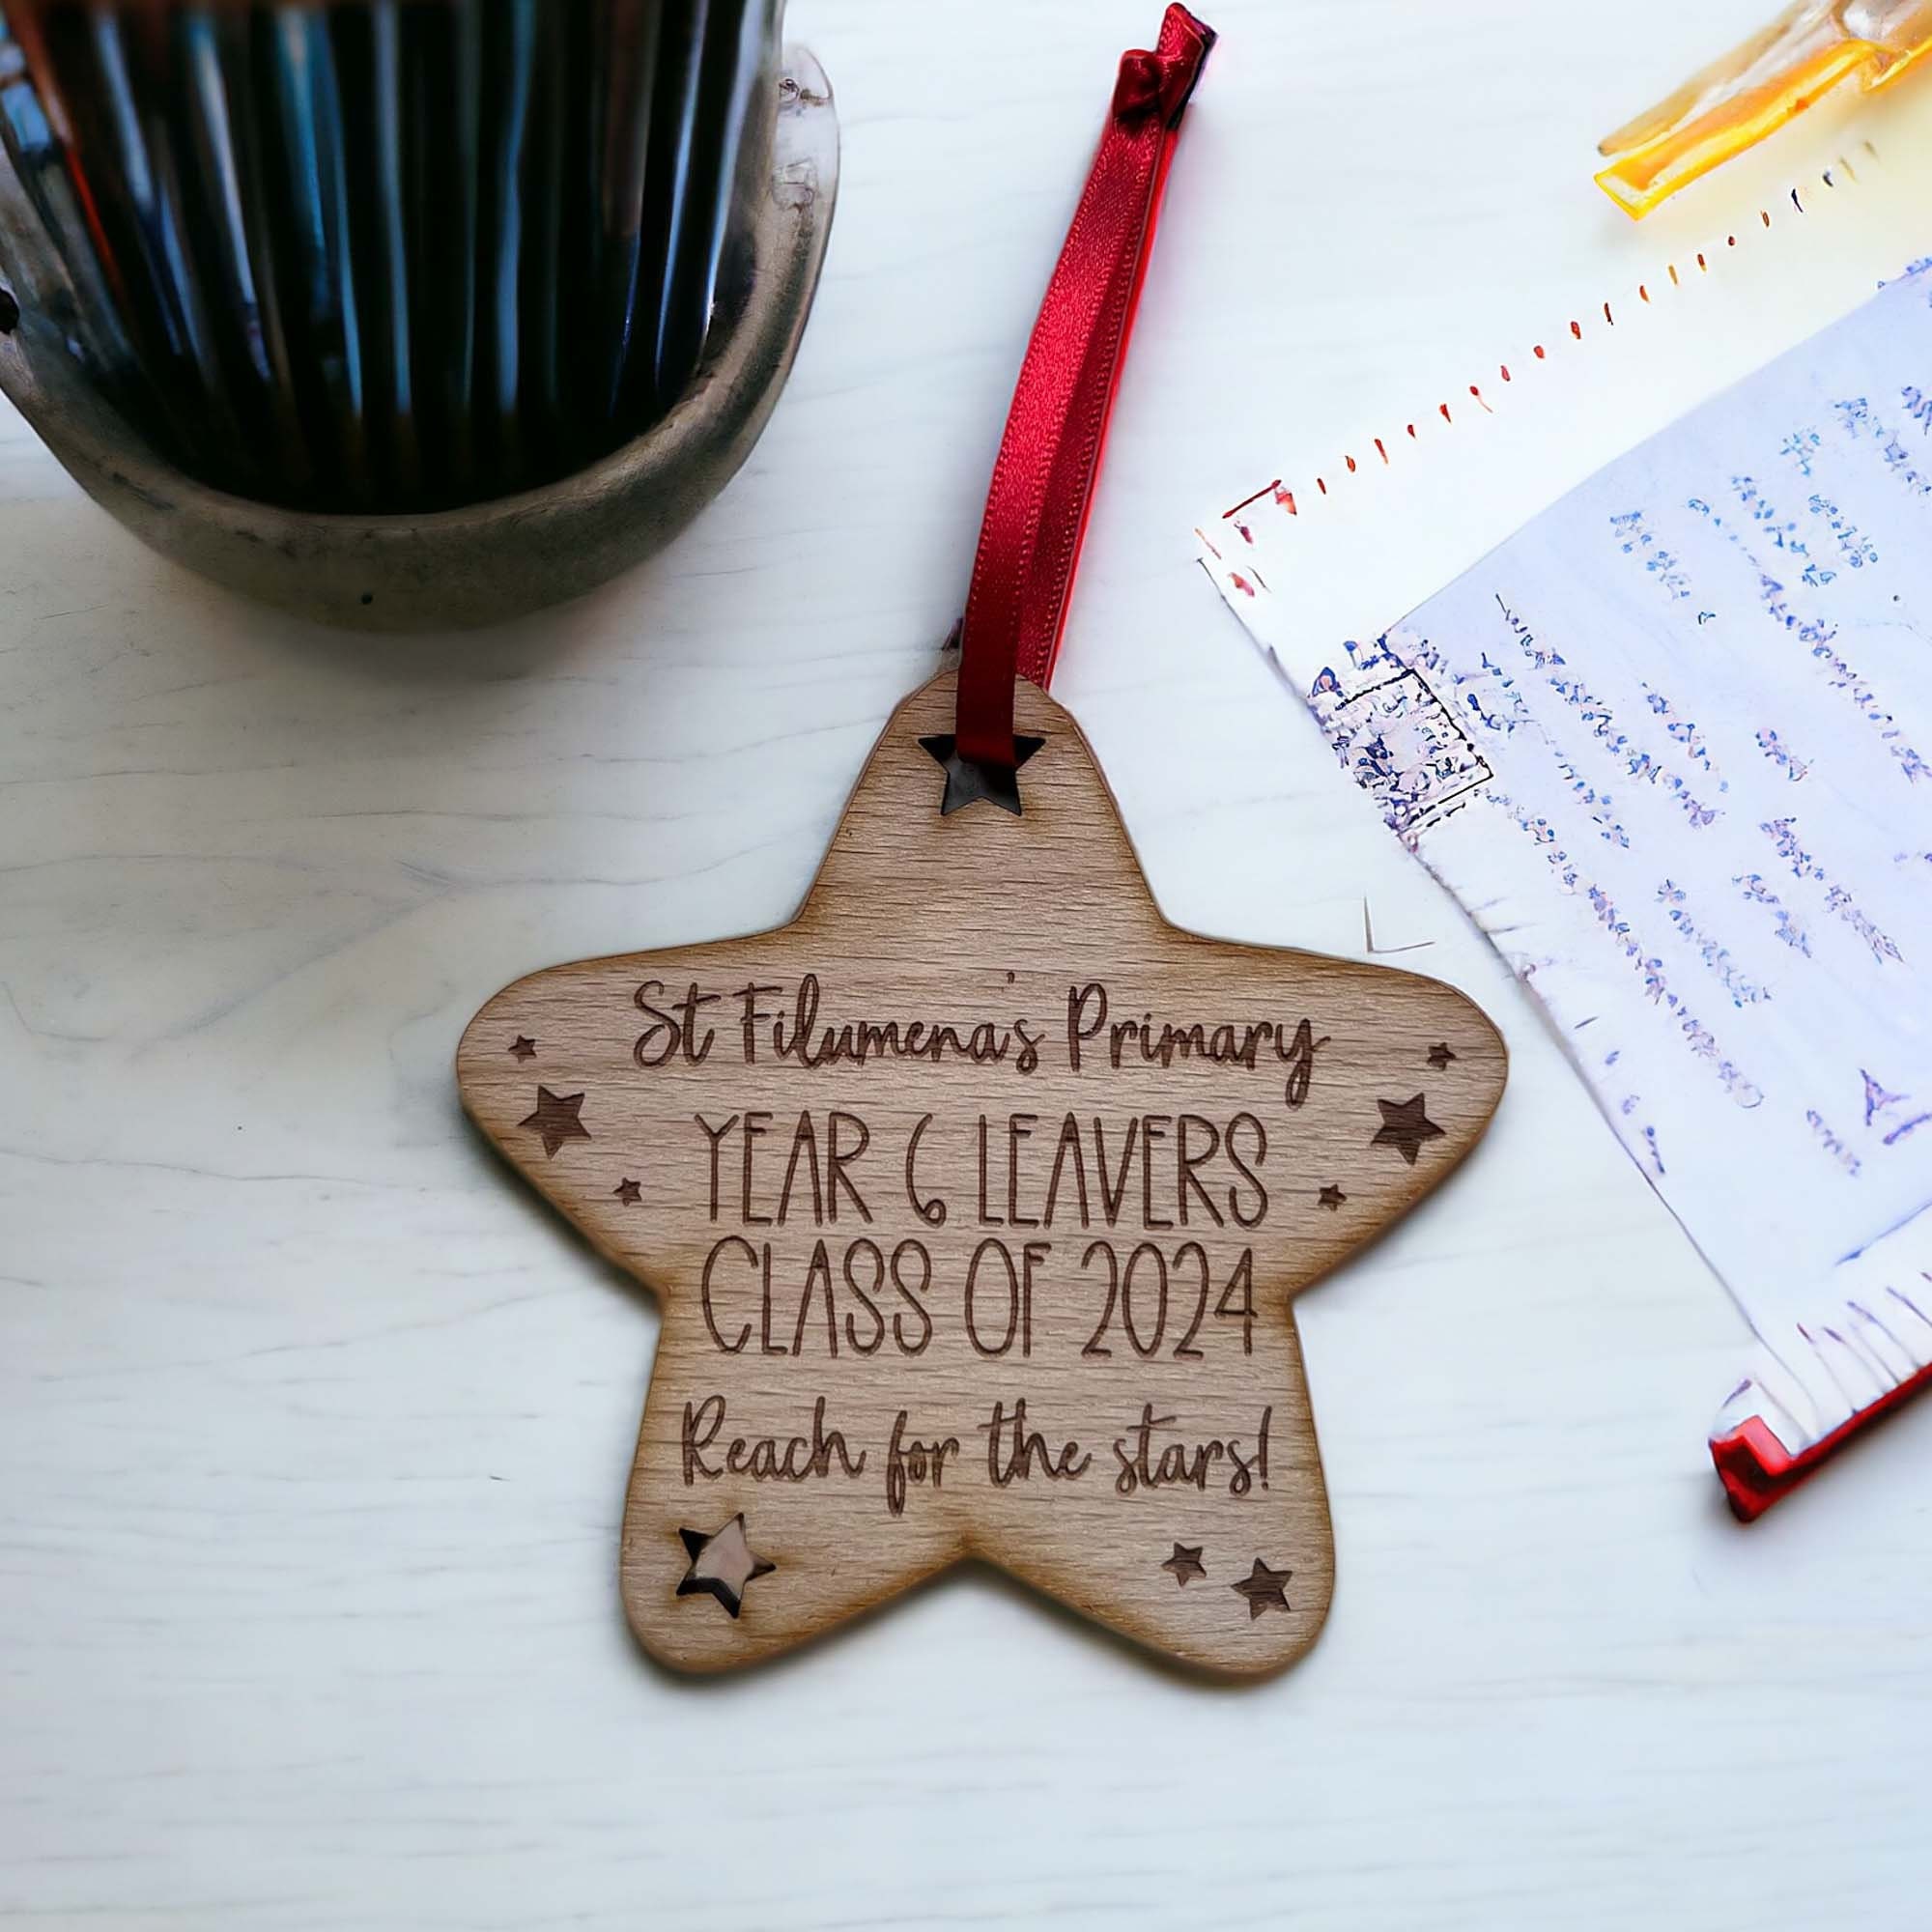 St Filumena's Primary
YEAR 6 LEAVERS
CLASS OF 2024
Reach for the stars!